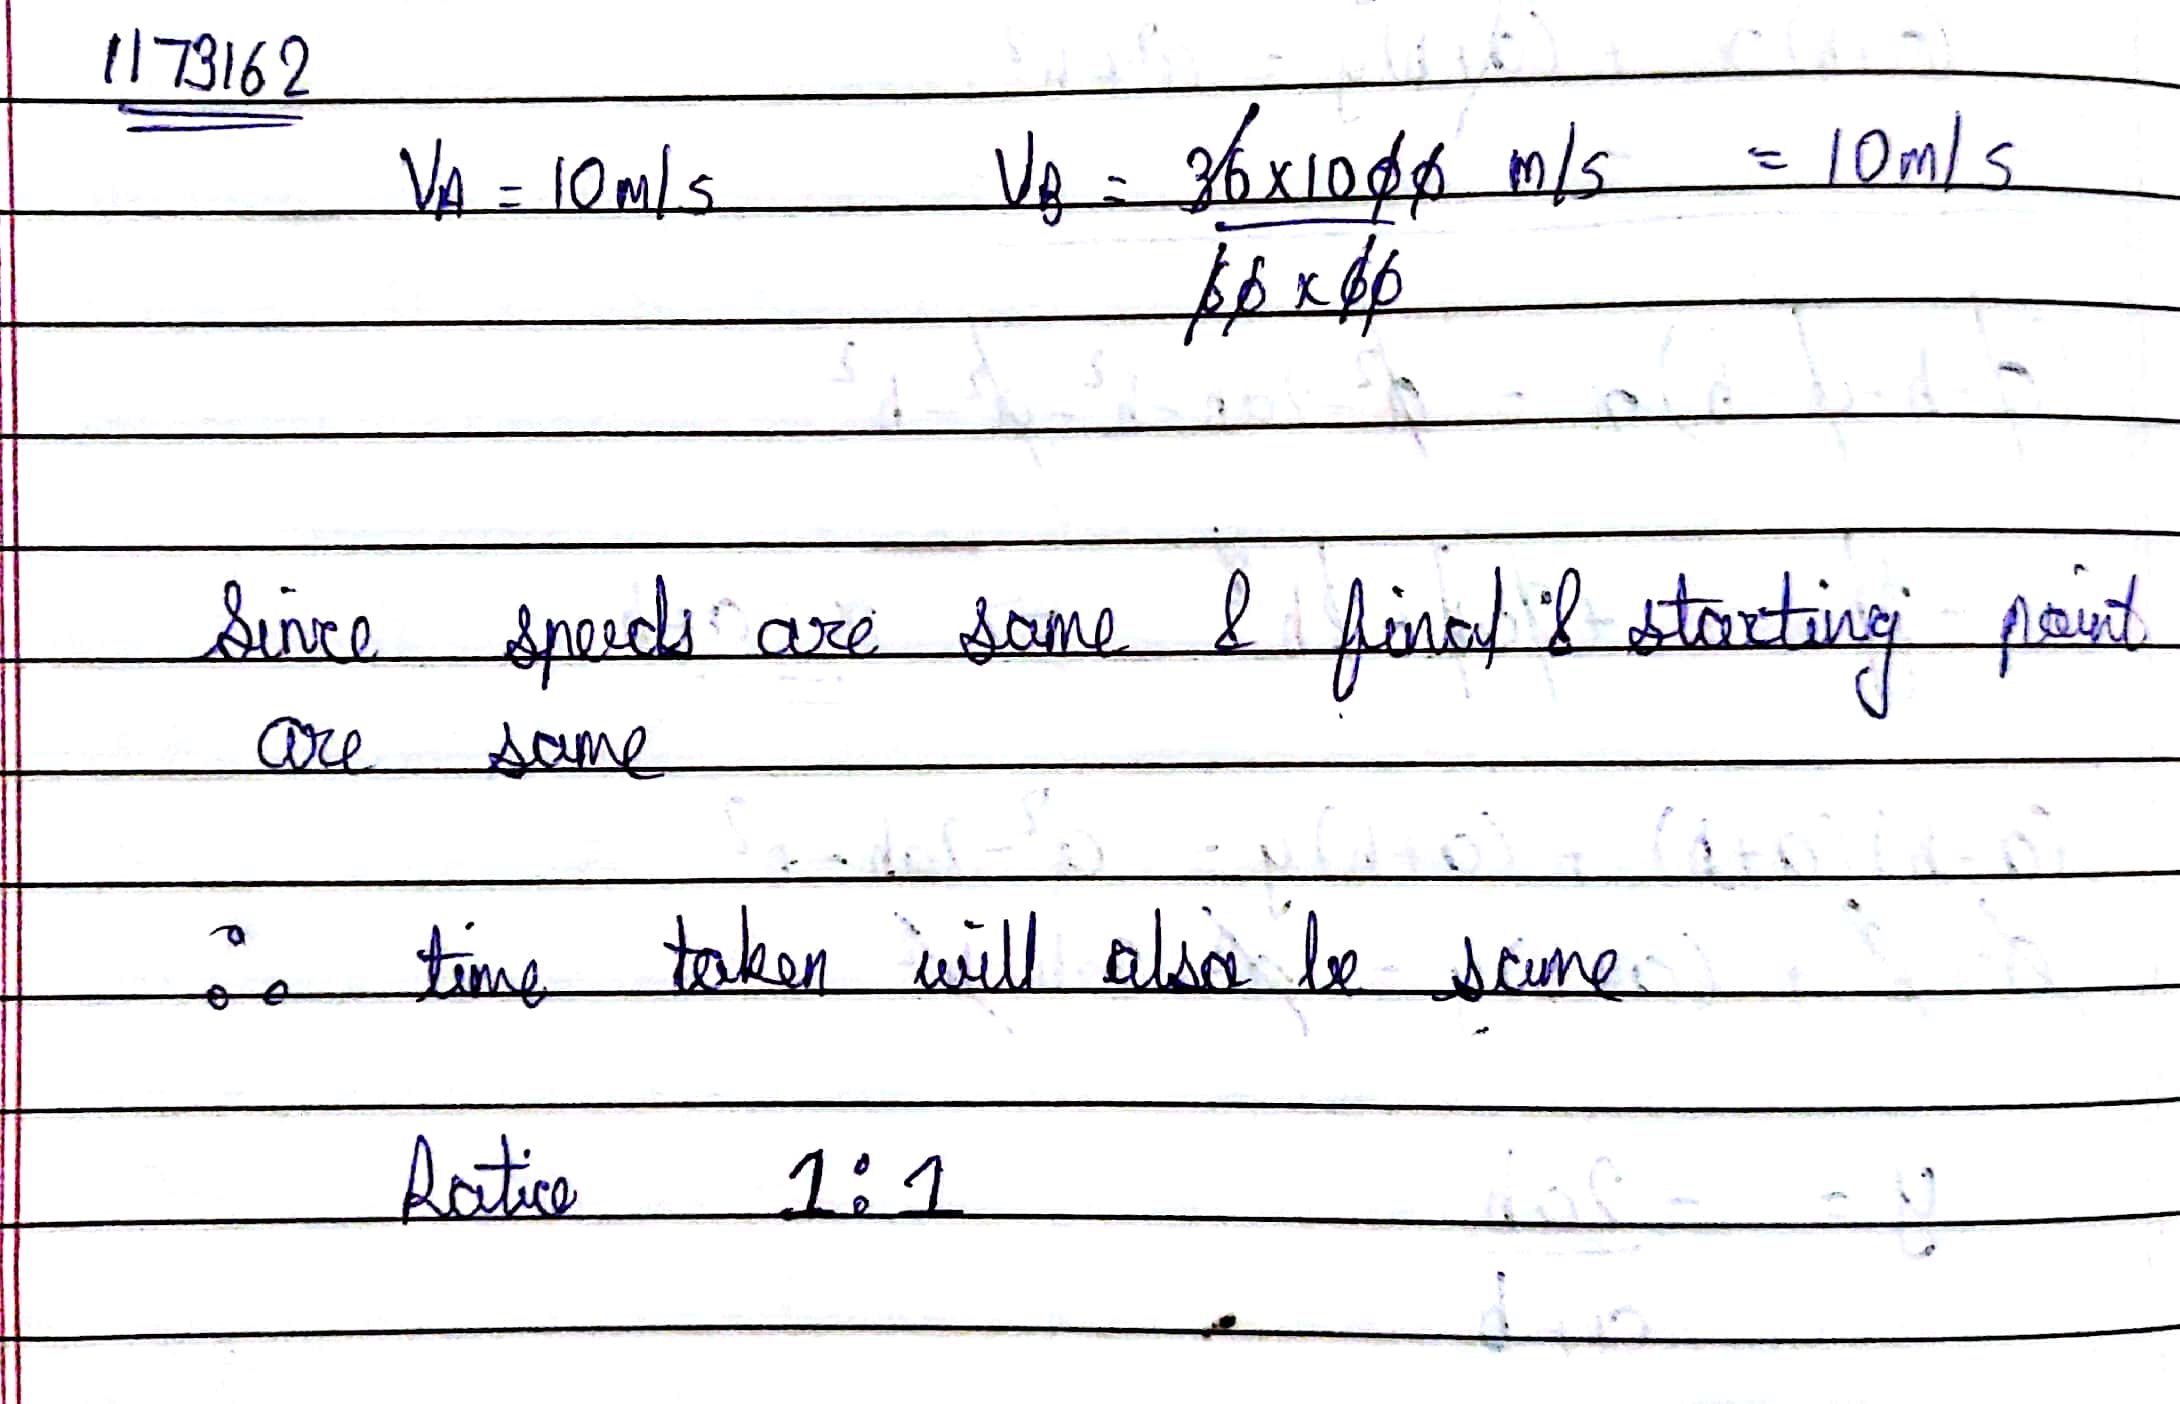 1173162
VA = 10m/s VB = 36x1000 m/s = 10m/s
60 x 60
Since speeds are same & final & starting point
are same
∴ time taken will also be same
Ratio 1:1